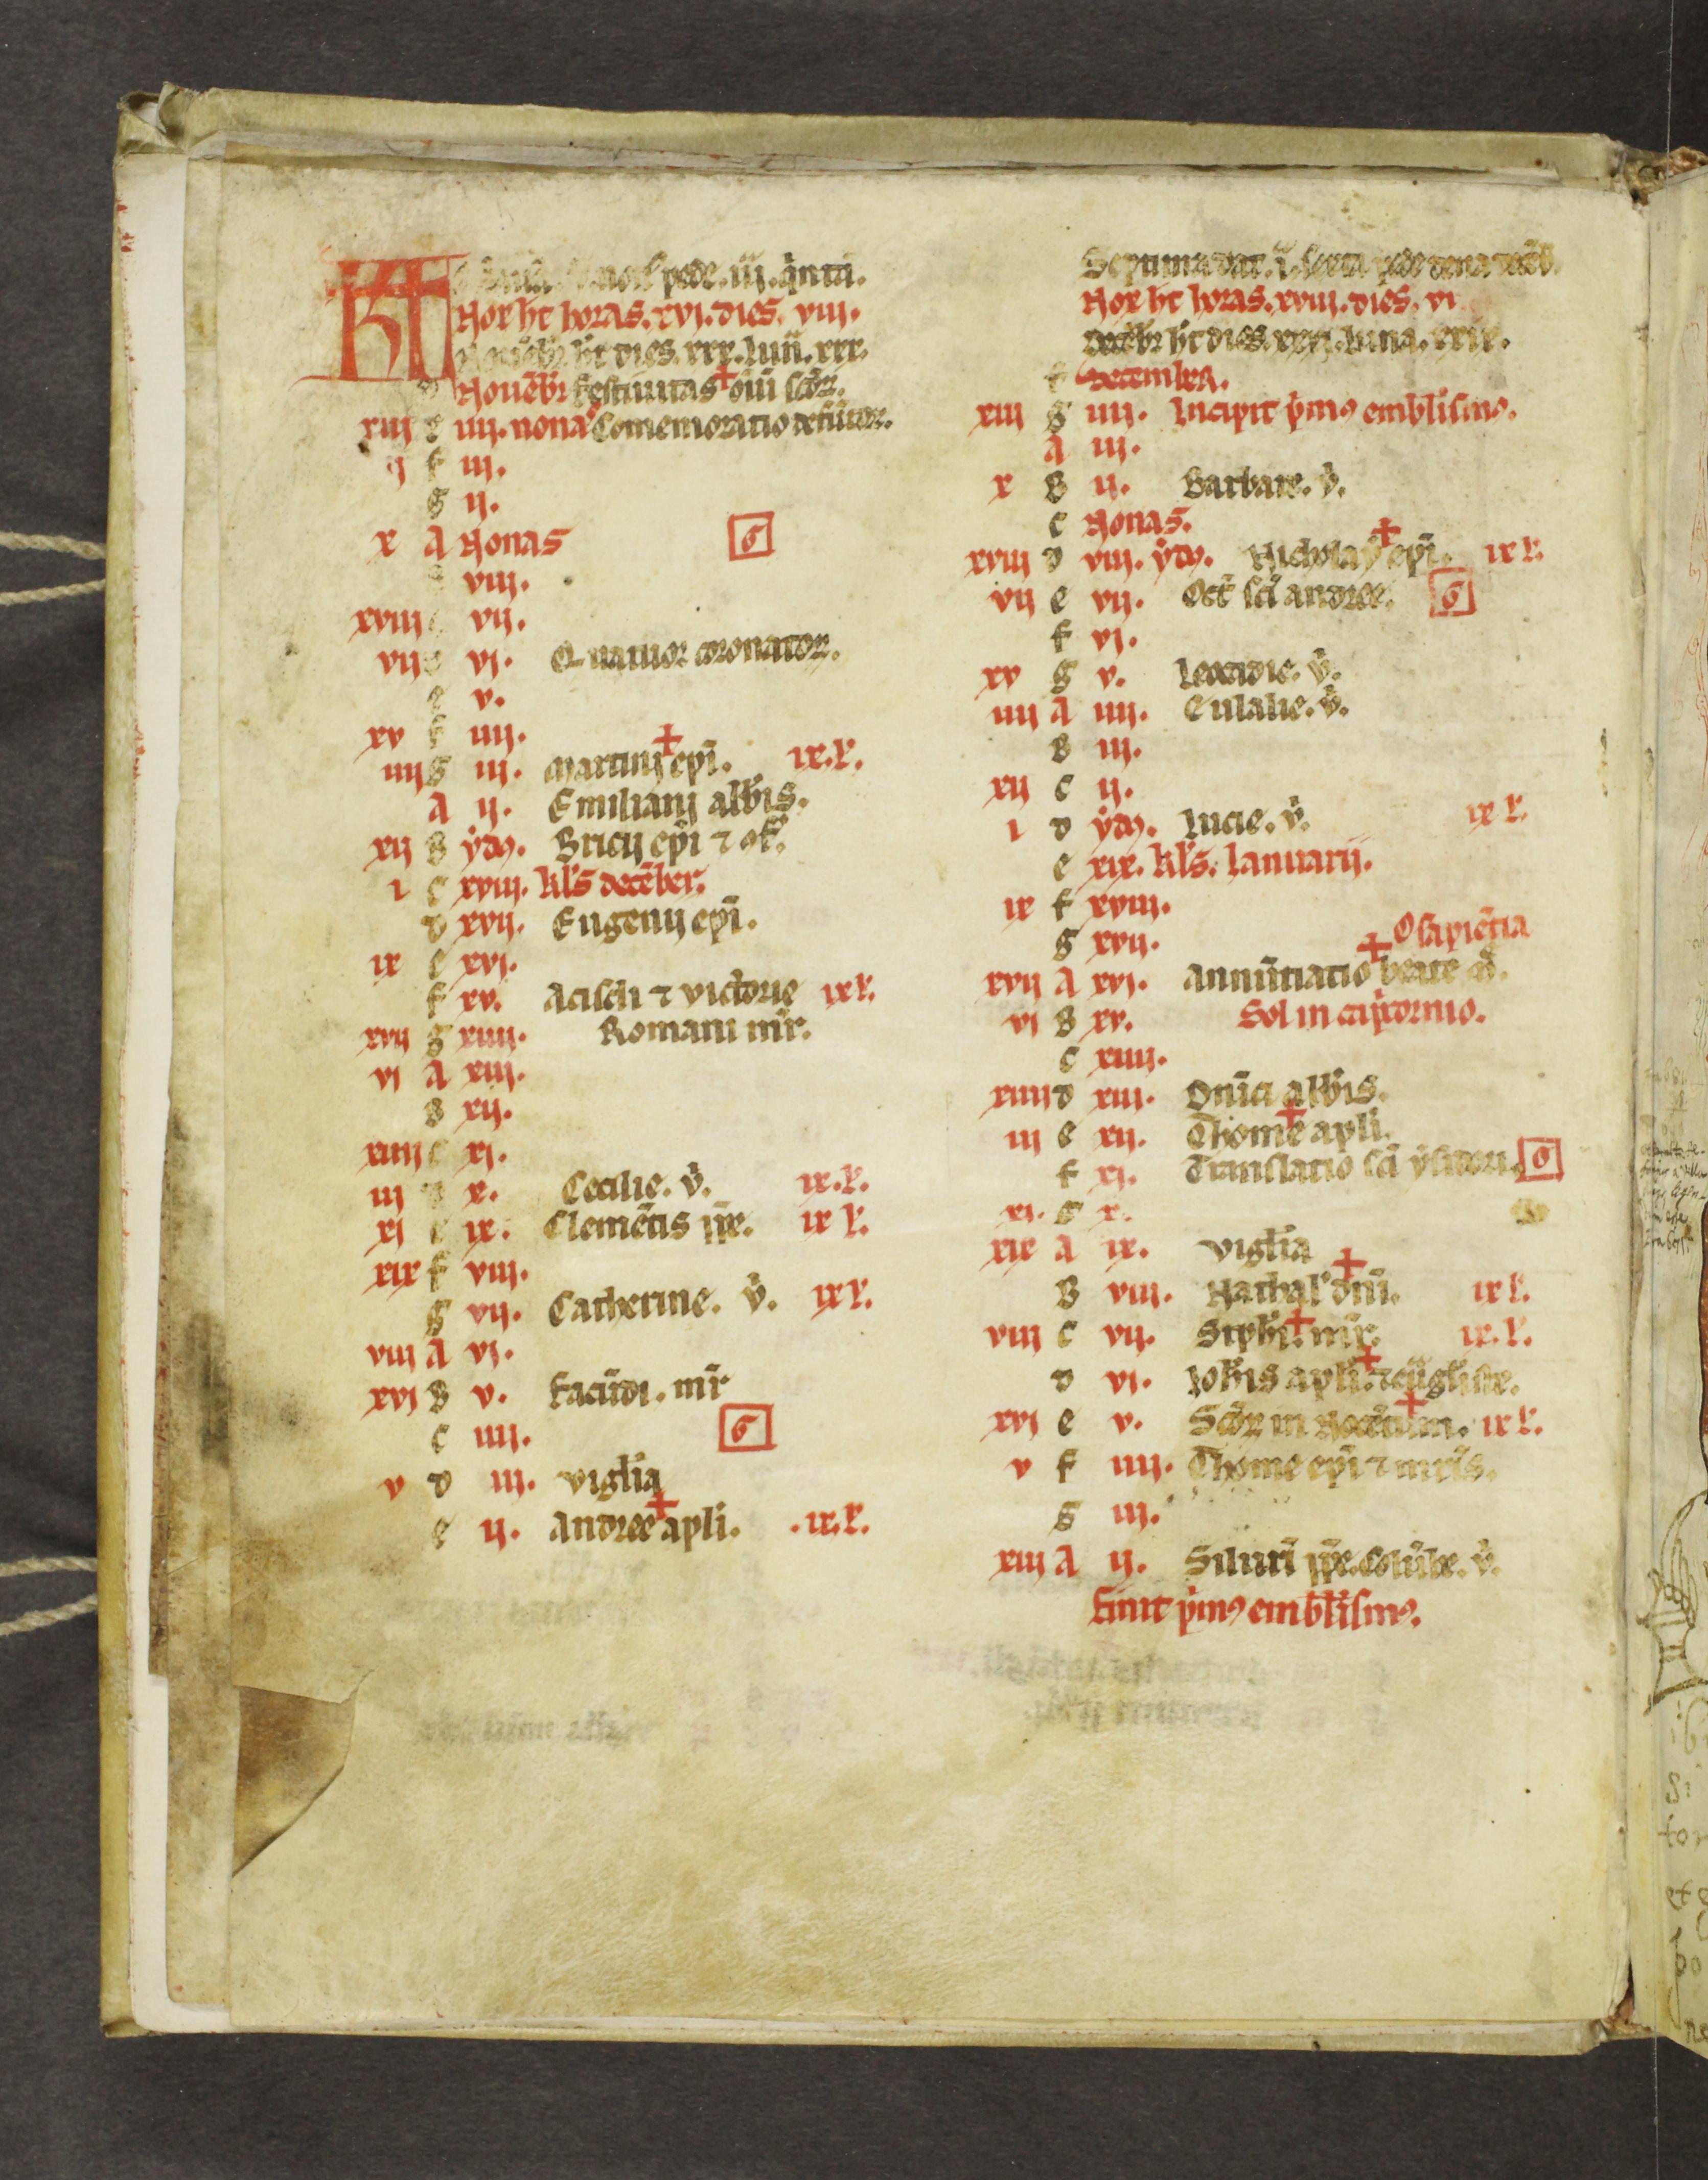 KL pede. iij. q̇ntā.
Nox ht horas. xvj. dies. viij.
hēt dies. xxx. luna. xxx.
d Nouēbr Festiuitas oīu sc̄or.
xiij e iiij. nonaˢ Comemoratio defūctor.
ij f iij.
g ij.
x A Nonas 6
viij.
xviij c vij.
vij d vj. Quatuor coronator.
e v.
xv f iiij.
iiij g iij. Martinj epī. ix. l̵.
A ij. Emilianj abb̄is.
xij B ydꝰ. Bricij epī ⁊ 9f.
i C xviij. kl̄s decēber.
d xvij. Eugenij epī.
ix e xvj.
f xv. Aciscli ⁊ victorie ix l̵.
xvij g xiiij. Romani mr̄.
vj A xiij.
B xij.
xiiij C xj.
iij d x. Cecilie. v̇. ix. l̵.
xj e ix. Clemētis pp̄e. ix l̵.
xix f viij.
g vij. Catherine. v̇. ix l̵.
viij A vj.
xvj B v. Facūdi. mr̄
C iiij. 6
v d iij. viglīa
e ij. Andree apli. . ix. l̵.
Septima dat. i. sexta
Nox ht horas. xviij. dies. vi
decēbr hēt dies. xxxj. luna. xxix.
f decembeꝛ.
xiij g iiij. Incipit p̄mꝰ emblismꝰ.
A iij.
x B ij. Barbare. v̇.
C Nonas.
xviij d viij. ydꝰ. Nicholay epī. ix l̵.
vij e vij. Oct̄ sc̄i andree. 6
f vj.
xv g v. Leocadie. v̇.
iiij A iiij. Eulalie. v̇.
B iij.
xij C ij.
i d ydꝰ. Lucie. v̇. ix l̵.
e xix. kl̄s. Ianuarij.
ix f xviij.
g xvij. O sapiētia
xvij A xvj. Annūtiatio beate m̄.
vj B xv. Sol in cap̄cornio.
C xiiij.
xiiij d xiij. Dn̄ici abb̄is.
iij e xij. Thome apli.
f xj. Translatio sc̄i ysidori. 6
xj. g x.
xix A ix. viglīa
B viij. Nathal̵ dn̄i. ix l̵.
viij C vij. Steph̄i. mr̄. ix. l̵.
d vj. Ioh̄is apli. ⁊ euāgliste.
xvj e v. Sc̄or innocentum. ix l̵.
v f iiij. Thome epī ⁊ mr̄is.
g iij.
xiij A ij. Siluri pp̄e. Colūbe. v̇.
Finit p̄mꝰ emblismꝰ.